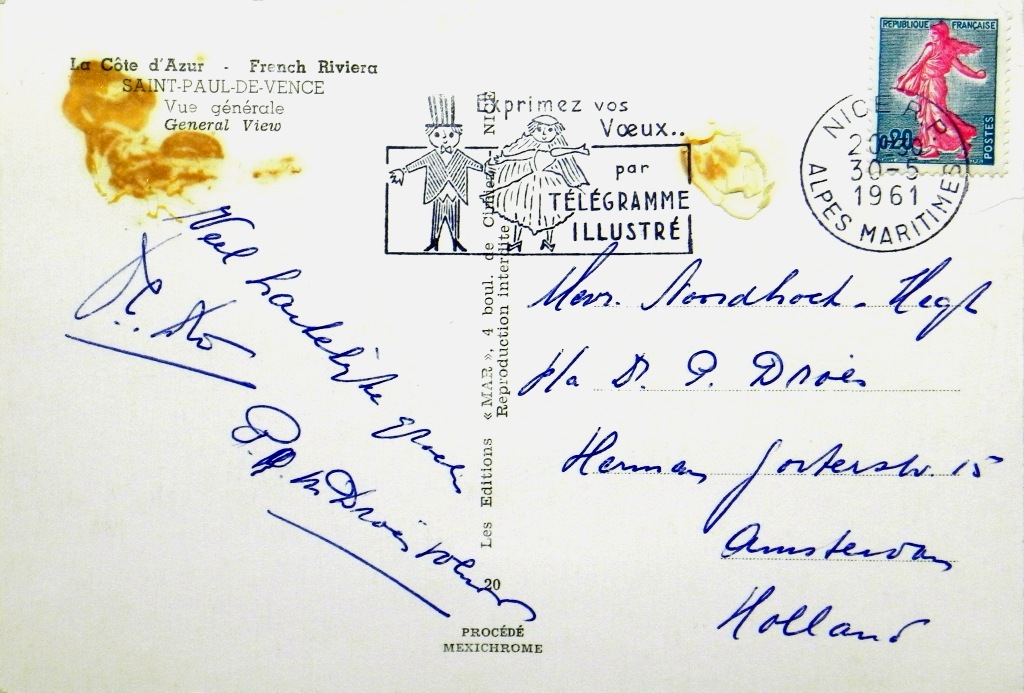 La Côte d'Azur - French Riviera
SAINT-PAUL-DE-VENCE
Vue générale
General View
Exprimez vos
Vœux..
par
TÉLÉGRAMME
ILLUSTRÉ
REPUBLIQUE FRANÇAISE
0,20
POSTES
NICE R.P.
30-5
1961
ALPES MARITIMES
Veel hartelijke groeten
P.
Les Editions « MAR », 4 boul. de Cimiez - NICE
Reproduction interdite
20
PROCÉDÉ
MEXICHROME
Mevr. Noordhoek - Hegt
p/a Dr. P. Droës
Herman Gorterstr. 15
Amsterdam
Holland